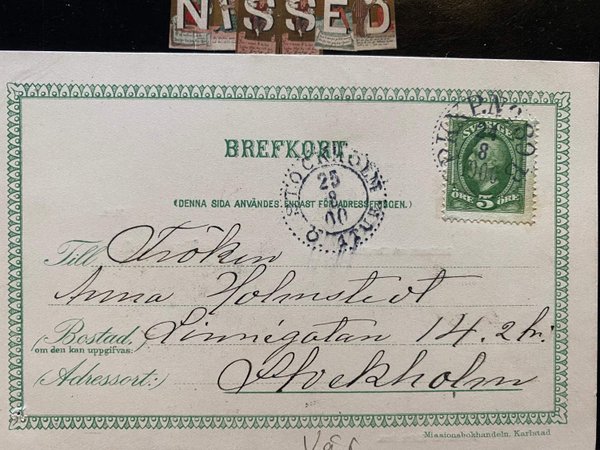 NISSED
BREFKORT
(DENNA SIDA ANVÄNDES ENDAST FÖR ADRESSERINGEN.)
STOCKHOLM
25
8
00
Ö. 1 TUR
24
8
1900
ÖRE 5 ÖRE
Till Fröken
Anna Holmstedt
(Bostad, Linnégatan 14. 2 tr.
om den kan uppgifvas:)
(Adressort:) Stockholm
Missionsbokhandeln, Karlstad